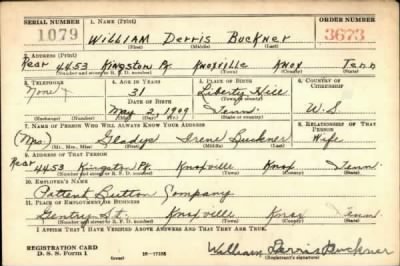 SERIAL NUMBER 1. NAME (Print) ORDER NUMBER
1079 William Derris Buckner 3673
(First) (Middle) (Last)
2. ADDRESS (Print)
Rear 4453 Kingston Pk. Knoxville Knox Tenn
(Number and street or R. F. D. number) (Town) (County) (State)
3. TELEPHONE 4. AGE IN YEARS 5. PLACE OF BIRTH 6. COUNTRY OF CITIZENSHIP
None 31 Liberty Hill
DATE OF BIRTH (Town or county)
May 2, 1909 Tenn. U.S.
(Exchange) (Number) (Mo.) (Day) (Yr.) (State or country)
7. NAME OF PERSON WHO WILL ALWAYS KNOW YOUR ADDRESS 8. RELATIONSHIP OF THAT PERSON
(Mrs) Gladys Irene Buckner Wife
(Mr., Mrs., Miss) (First) (Middle) (Last)
9. ADDRESS OF THAT PERSON
Rear 4453 Kingston Pk. Knoxville Knox Tenn.
(Number and street or R. F. D. number) (Town) (County) (State)
10. EMPLOYER'S NAME
Patent Button Company
11. PLACE OF EMPLOYMENT OR BUSINESS
Gentry St. Knoxville Knox Tenn.
(Number and street or R. F. D. number) (Town) (County) (State)
I AFFIRM THAT I HAVE VERIFIED ABOVE ANSWERS AND THAT THEY ARE TRUE.
REGISTRATION CARD
D. S. S. Form 1 16—17105 William Derris Buckner